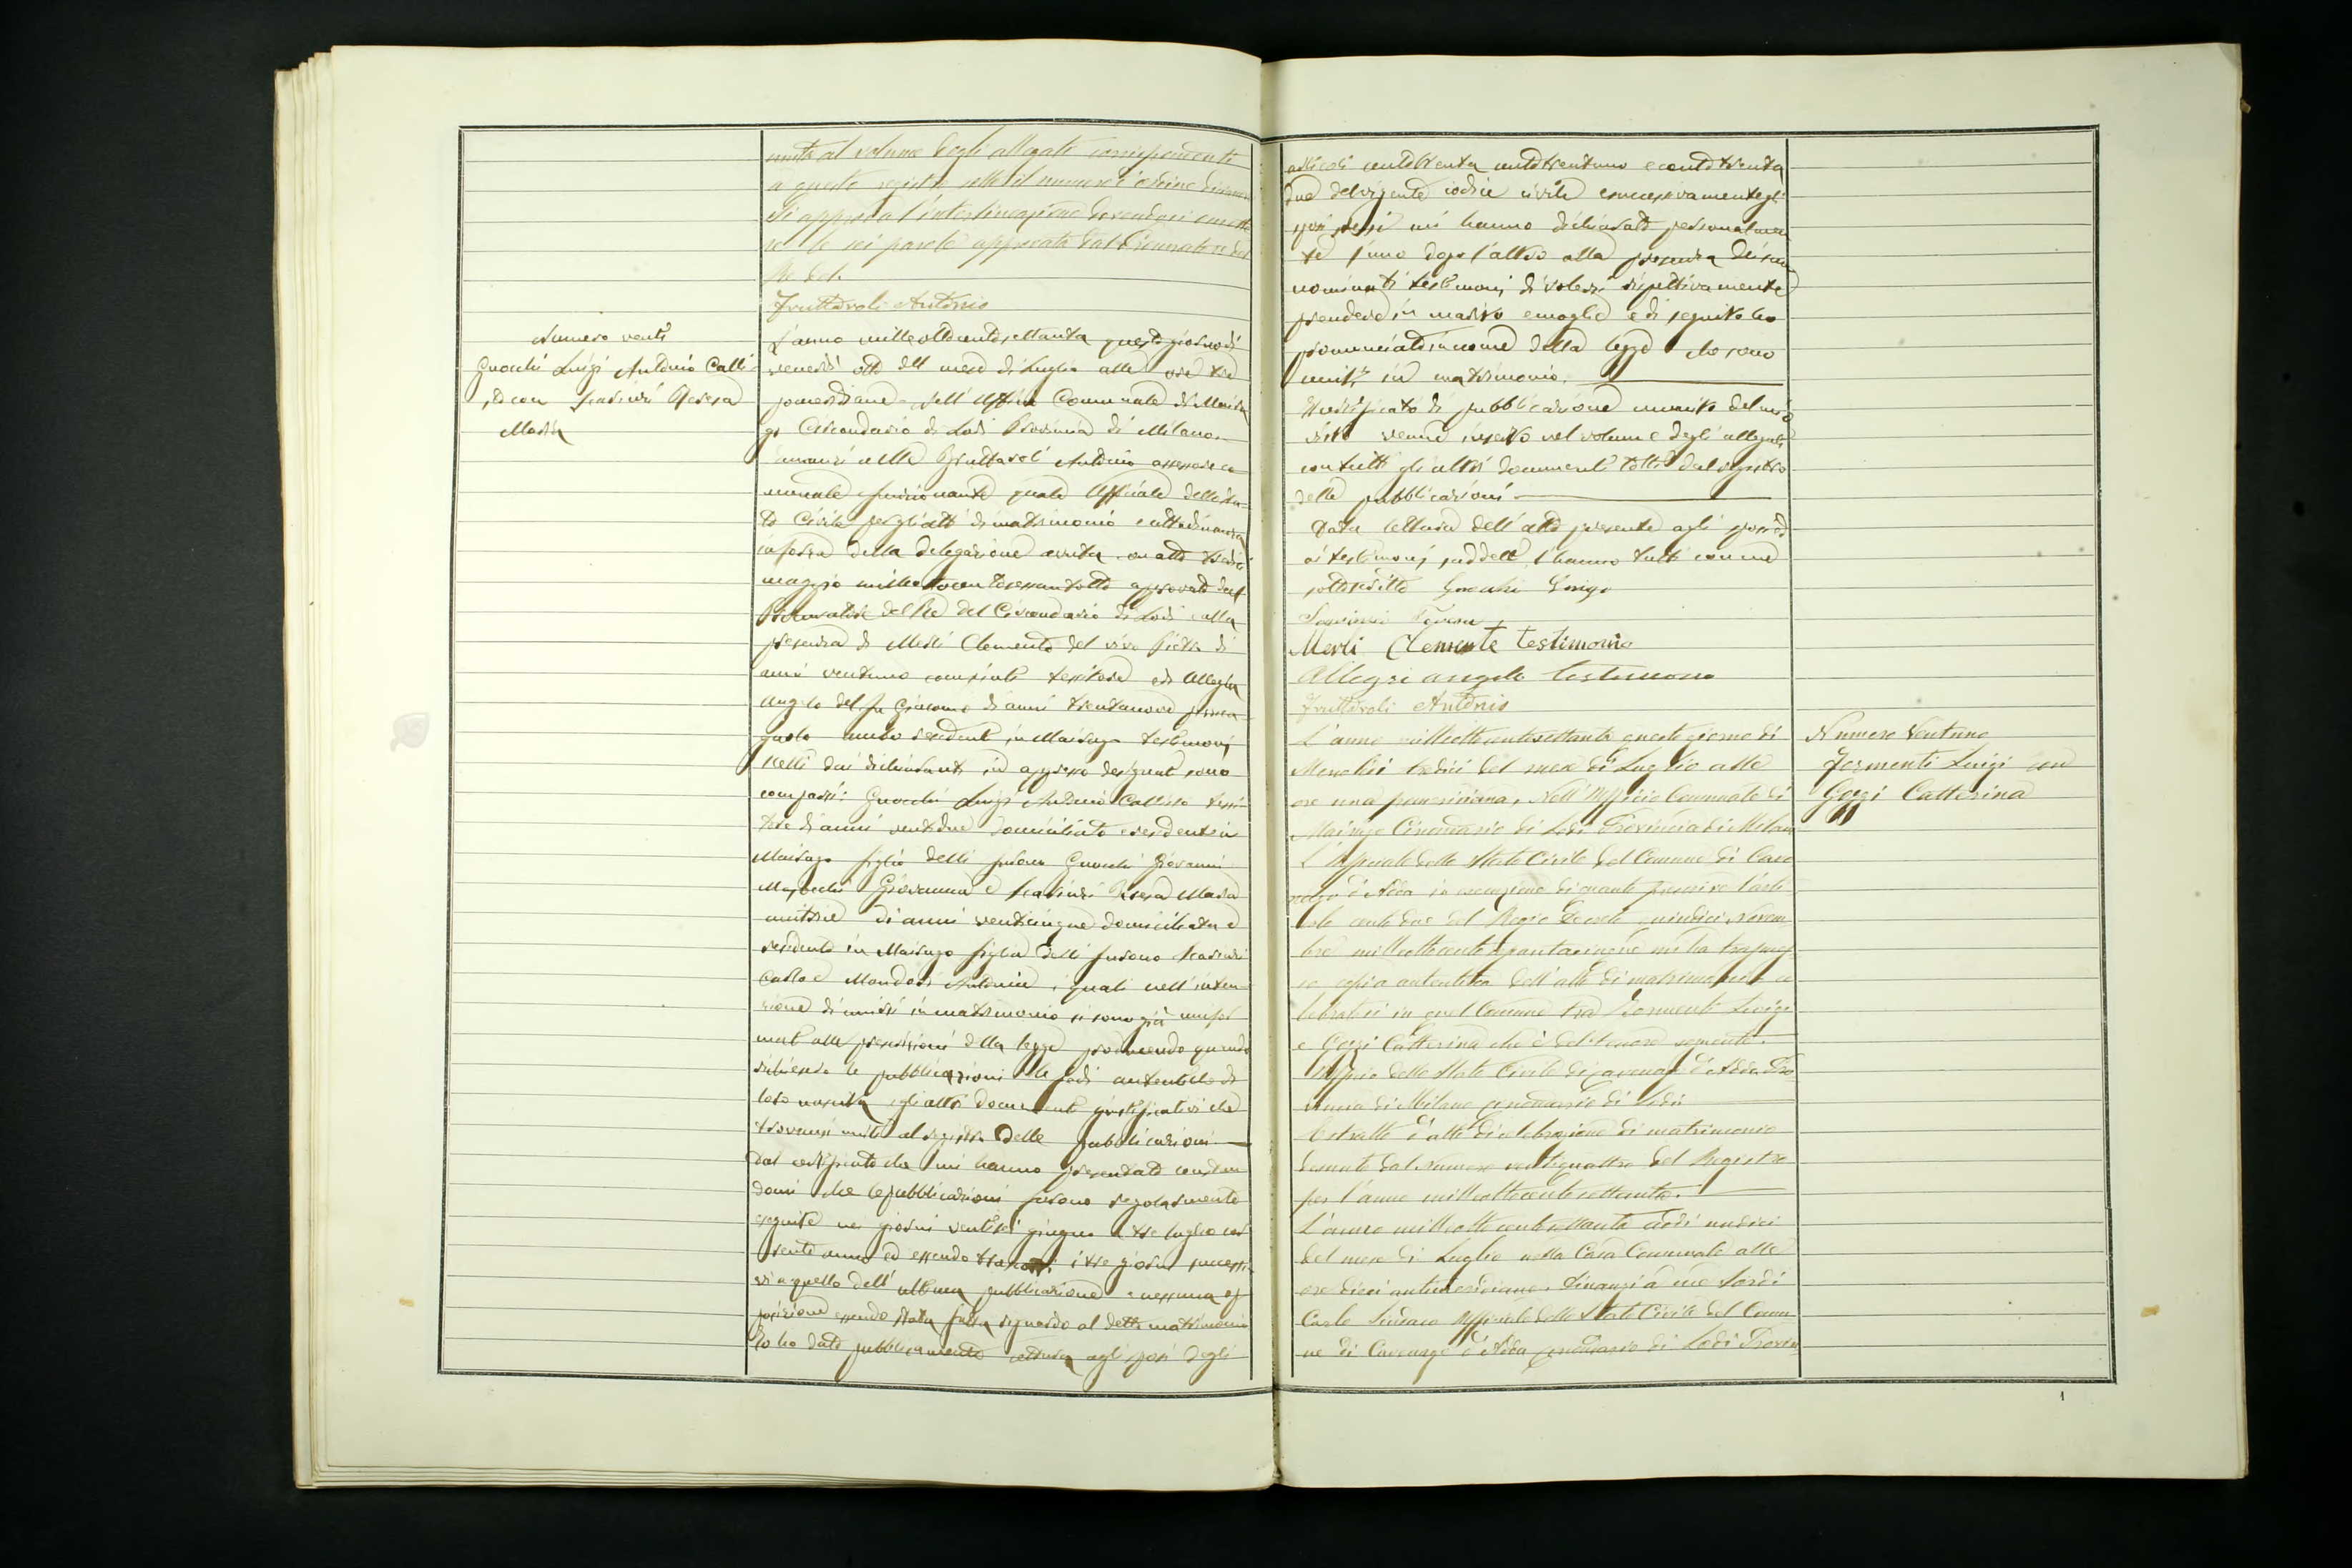 unite al volume degli allegati corrispondenti
a questo registro sotto il numero d'ordine
Si approva l'interlineazione dovendosi omette
re le sei parole approvate dal Procuratore del
Re
Fruttaroli Antonio
Numero venti
Gnocchi Luigi Antonio Calli
sto con Scarioni Teresa
Maria
L'anno milleottocentosettanta questo giorno di
venerdì otto del mese di Luglio alle ore tre
pomeridiane nell'Ufficio Comunale di Maira
go Circondario di Lodi Provincia di Milano
innanzi a Me Fruttaroli Antonio assessore co
munale funzionante quale Ufficiale dello Sta
to Civile per gli atti di matrimonio e cittadinanza
in forza della delegazione avuta con atto tredici
maggio milleottocentosessantotto approvato dal
Procuratore del Re del Circondario di Lodi alla
presenza di Merli Clemente del vivo Pietro di
anni ventuno compiuti tessitore e di Allegri
Angelo del fu Giacomo di anni trentanove
ambo residenti in Mairago testimonj
scelti dai dichiaranti in appresso designati sono
comparsi: Gnocchi Luigi Antonio Callisto tessi
tore di anni ventidue domiciliato e residente in
Mairago figlio delli furono Gnocchi Giovanni
Majocchi Giovanna e Scarioni Teresa Maria
cucitrice di anni venticinque domiciliata e
residente in Mairago figlia delli furono Scarioni
Carlo e Mondodi Antonia, i quali nell'inten
zione di unirsi in matrimonio si sono già unifor
mati alle prescrizioni della legge producendo quando
richiesero le pubblicazioni le fedi autentiche di
loro nascita e gli altri documenti giustificativi che
trovansi uniti al registro delle pubblicazioni
Dal certificato che mi hanno presentato constan
domi che le pubblicazioni furono regolarmente
eseguite nei giorni ventisei giugno e tre luglio cor
rente anno ed essendo trascorsi i tre giorni successi
vi a quello dell'ultima pubblicazione e nessuna op
posizione essendo stata fatta riguardo al detto matrimonio
Io ho dato pubblicamente lettura agli sposi degli
articoli centotrenta centotrentuno e centotrenta
due del vigente codice civile e successivamente gli
sposi stessi mi hanno dichiarato personalmen
te l'uno dopo l'altro alla presenza dei sun
nominati testimonj di volersi rispettivamente
prendere in marito e moglie e di seguito ho
pronunciato in nome della legge che sono
uniti in matrimonio.
Il certificato di pubblicazione munito del mio
visto venne inserto nel volume degli allegati
con tutti gli altri documenti tolti dal registro
delle pubblicazioni
Data lettura dell'atto presente agli sposi ed
ai testimonj suddetti l'hanno tutti con me
sottoscritto Gnocchi Luigi
Scarioni Teresa
Merli Clemente testimonio
Allegri angelo testimono
Fruttaroli Antonio
L'anno milleottocentosettanta questo giorno di
Mercoledì tredici del mese di Luglio alle
ore una pomeridiana, Nell'Ufficio Comunale di
Mairago Circondario di Lodi Provincia di Milano
L'Ufficiale dello Stato Civile del Comune di Cave
nago d'Adda in esecuzione di quanto prescrive l'arti
colo cento due del Regio Decreto quindici Novem
bre milleottocentosessantacinque mi ha trasmes
so copia autentica dell'atto di matrimonio ce
lebratosi in quel Comune tra Formenti Luigi
e Gozzi Catterina che è del tenore seguente.
Ufficio dello Stato Civile di Cavenago d'Adda Pro
vincia di Milano circondario di Lodi
Estratto d'atto di celebrazione di matrimonio
desunto dal Numero ventiquattro del Registro
per l'anno milleottocentosettanta.
L'anno milleottocentosettanta addì undici
del mese di Luglio nella Casa Comunale alle
ore dieci antimeridiane. Dinanzi a me Sordi
Carlo Sindaco Ufficiale dello Stato Civile del Comu
ne di Cavenago d'Adda circondario di Lodi Provin
Numero Ventuno
Formenti Luigi con
Gozzi Catterina
1